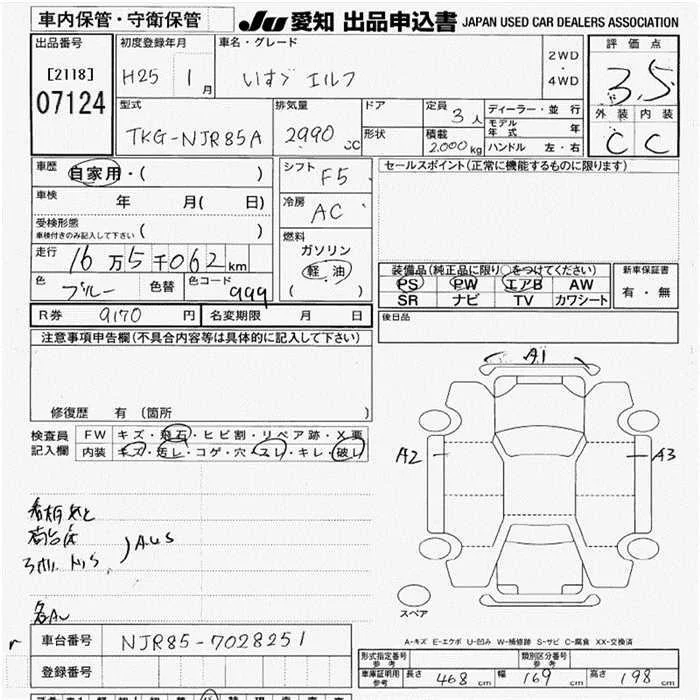 車内保管・守衛保管
JU 愛知 出品申込書 JAPAN USED CAR DEALERS ASSOCIATION
出品番号
[2118]
07124
初度登録年月
H25 1月
車名・グレード
いすゞ エルフ
2WD
・
4WD
評価点
3.5
外装 内装
C C
型式
TKG-NJR85A
排気量
2990 CC
ドア
形状
定員 3人
積載
2.000kg
ディーラー・並行
モデル年式 年
ハンドル 左・右
車歴
自家用・( )
車検 年 月( 日)
受検形態
車検付きのみ記入して下さい ( )
走行
16万5千062km
色 ブルー 色替 色コード 999
シフト F5
冷房 AC
燃料
ガソリン
軽・油
( )
セールスポイント(正常に機能するものに限ります)
装備品(純正品に限り○をつけてください)
PS PW エアB AW
SR ナビ TV カワシート
新車保証書
有・無
R券 9170 円 名変期限 月 日
後日品
注意事項申告欄(不具合内容等は具体的に記入して下さい)
修復歴 有 (箇所 )
検査員
記入欄
FW キズ・飛石・ヒビ割・リペア跡・X要
内装 キズ・汚レ・コゲ・穴・スレ・キレ・破レ
A1
A2 A3
A.U.S
スペア
A-キズ E-エクボ U-凹み W-補修跡 S-サビ C-腐食 XX-交換済
車台番号 NJR85-7028251
登録番号
型式指定番号
参考
類別区分番号
参考
車庫証明用
参考
長さ 468cm 幅 169cm 高さ 198cm